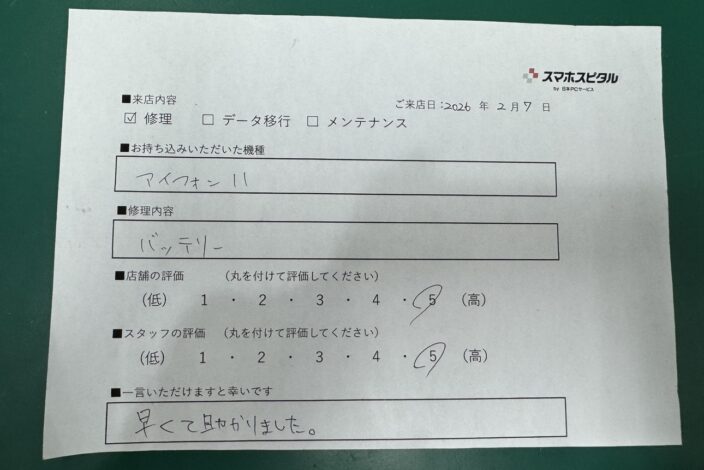 スマホスピタル
by 日本PCサービス
■来店内容
ご来店日:2026 年 2 月 7 日
☑ 修理 □ データ移行 □ メンテナンス
■お持ち込みいただいた機種
アイフォン 11
■修理内容
バッテリー
■店舗の評価 (丸を付けて評価してください)
(低) 1 ・ 2 ・ 3 ・ 4 ・ 5 (高)
■スタッフの評価 (丸を付けて評価してください)
(低) 1 ・ 2 ・ 3 ・ 4 ・ 5 (高)
■一言いただけますと幸いです
早くて助かりました。